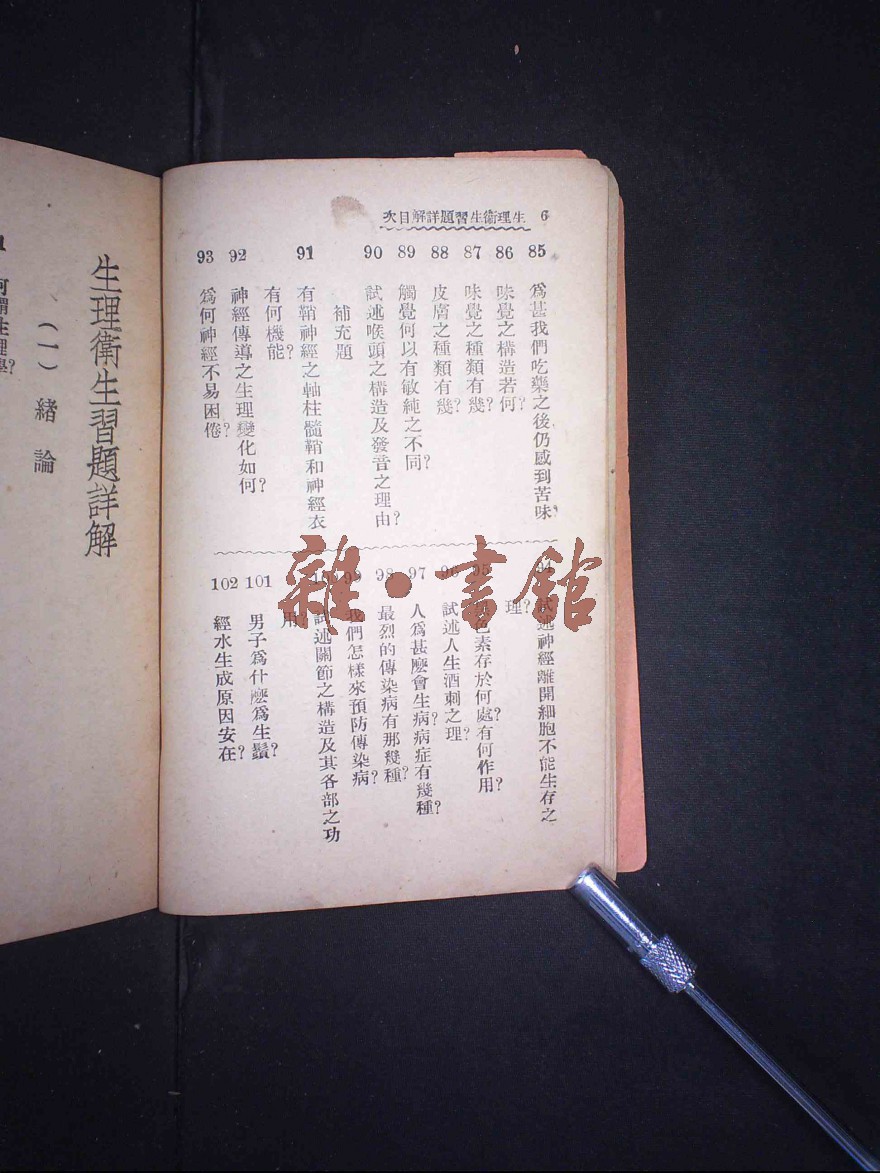 6 生理衞生習題詳解目次
85 爲甚我們吃藥之後仍感到苦味?
86 味覺之構造若何?
87 味覺之種類有幾?
88 皮膚之種類有幾?
89 觸覺何以有敏純之不同?
90 試述喉頭之構造及發音之理由?
補充題
91 有鞘神經之軸柱髓鞘和神經衣
有何機能?
92 神經傳導之生理變化如何?
93 爲何神經不易困倦?
94 試述神經離開細胞不能生存之
理?
95 色素存於何處?有何作用?
96 試述人生酒刺之理?
97 人爲甚麽會生病病症有幾種?
98 最烈的傳染病有那幾種?
99 我們怎樣來預防傳染病?
試述關節之構造及其各部之功
用?
101 男子爲什麽爲生鬚?
102 經水生成原因安在?
生理衞生習題詳解
(一) 緒論
何謂生理學?
雜·書館